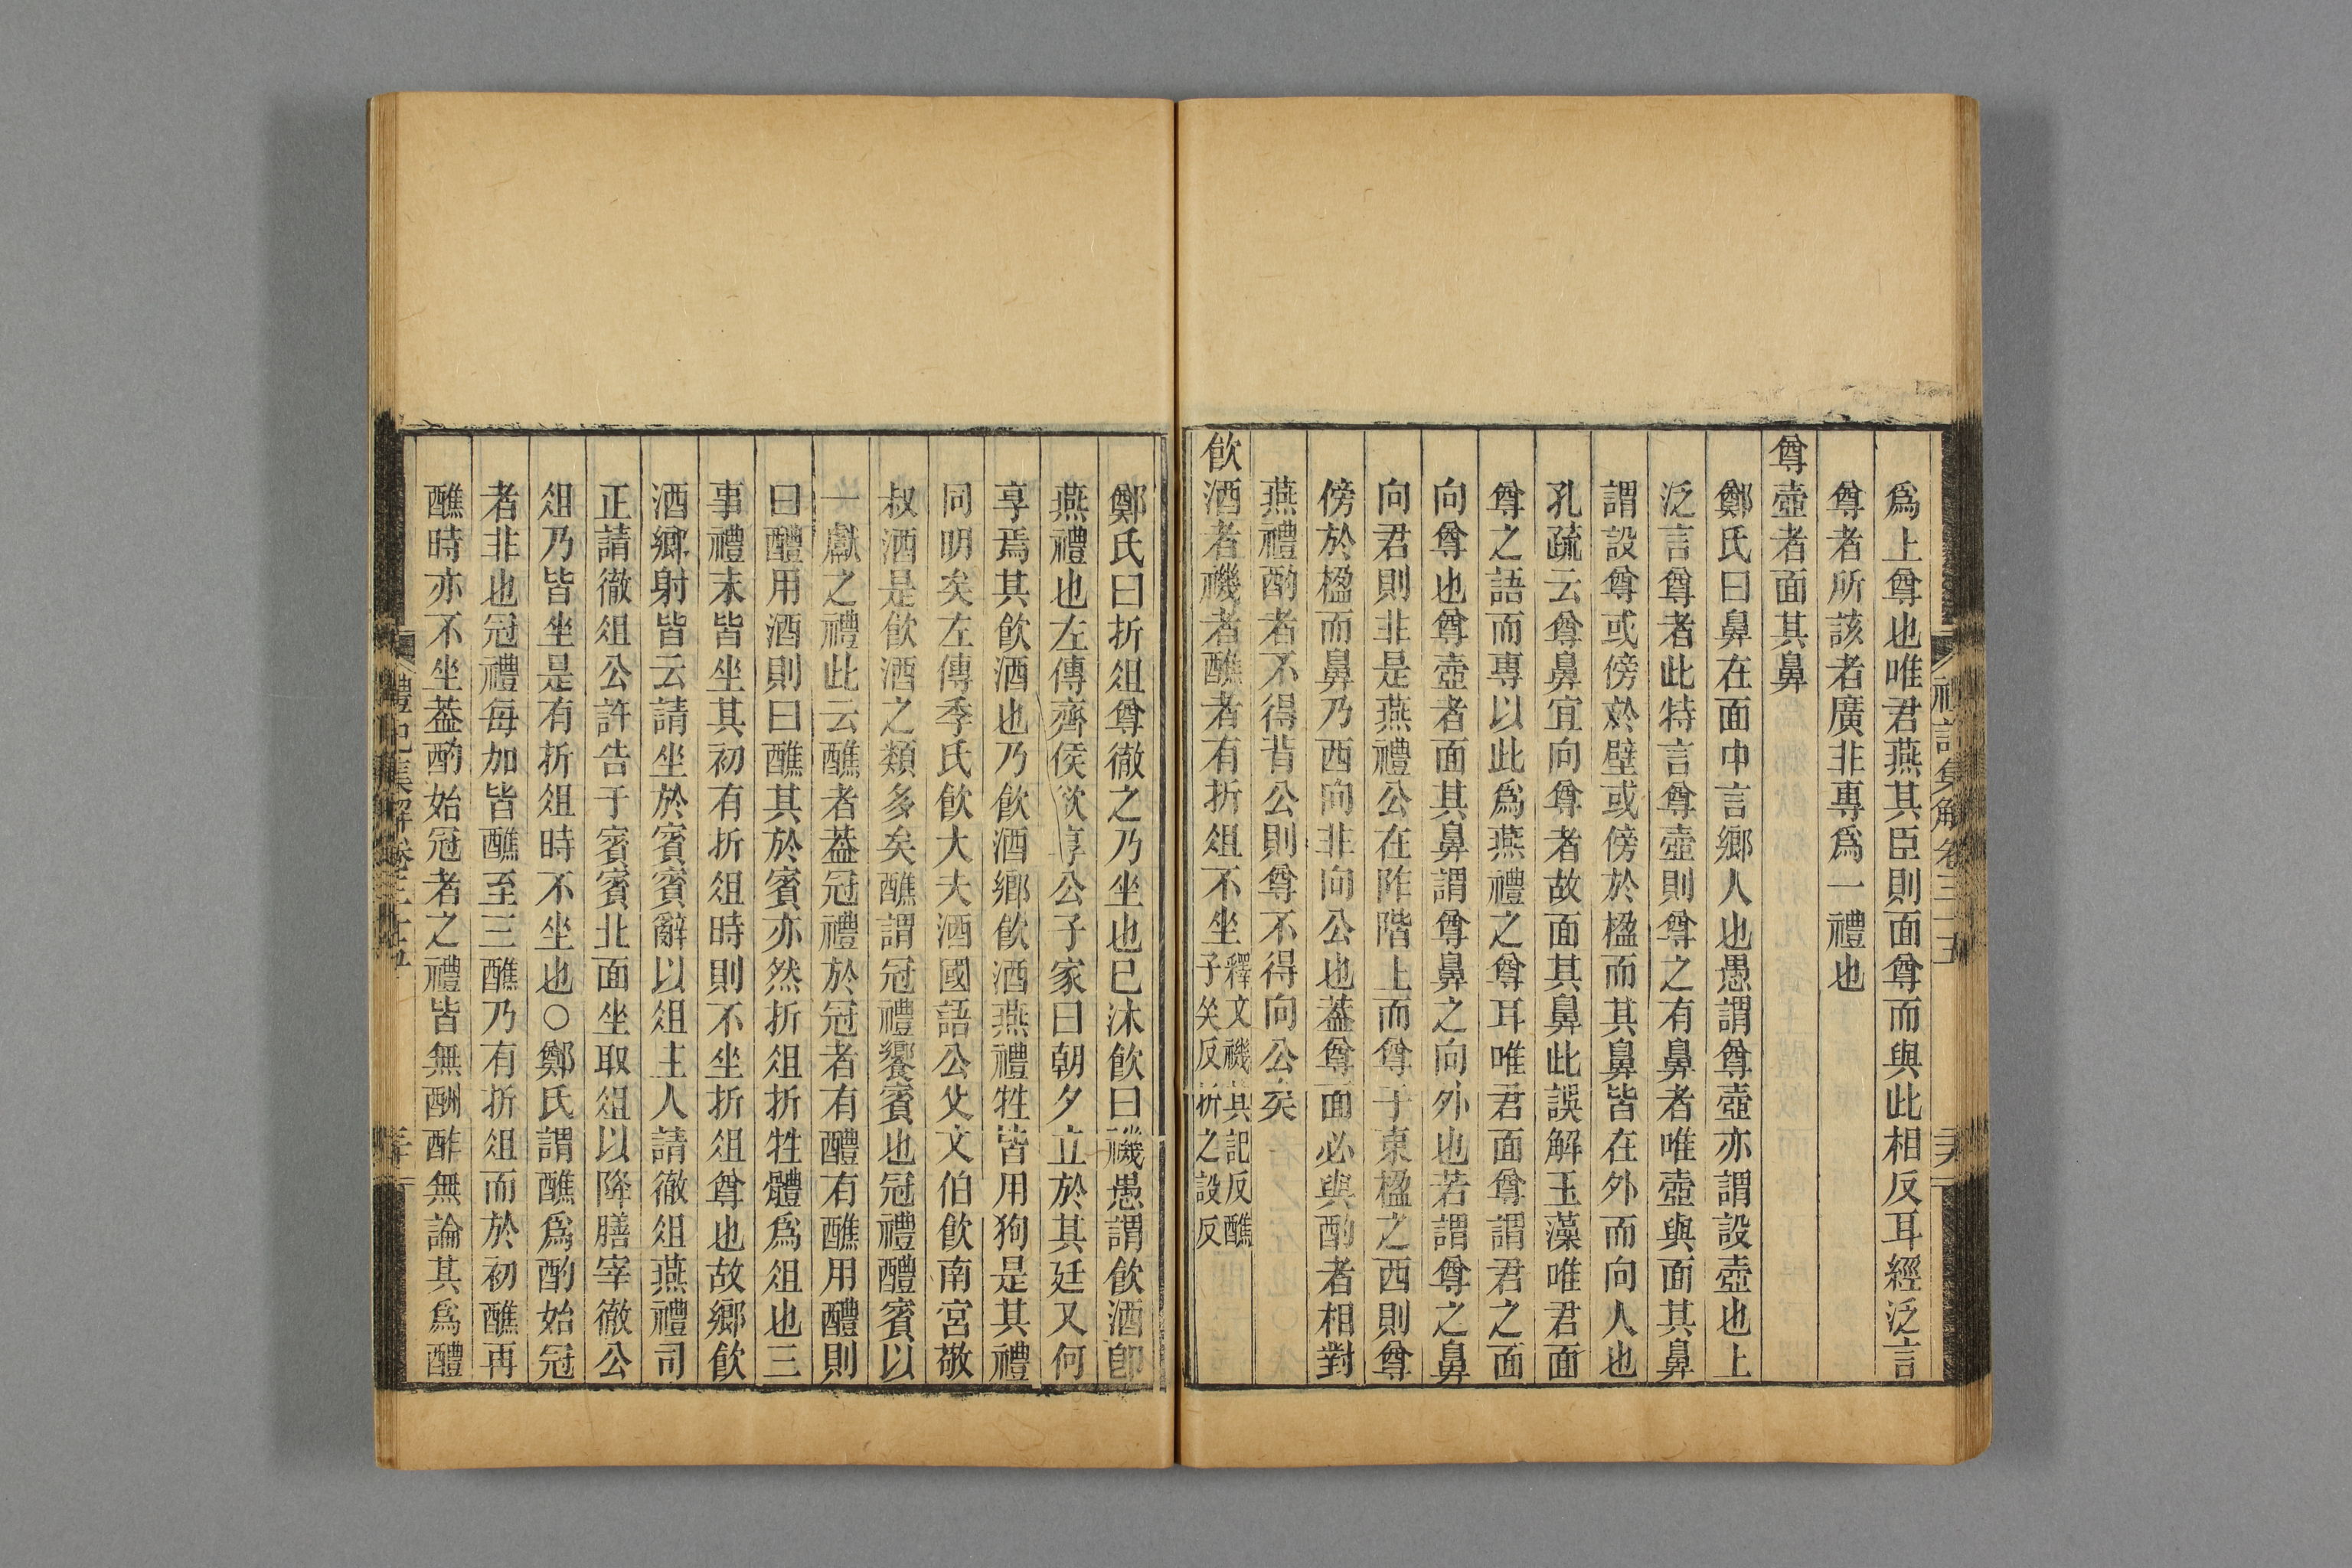 爲上尊也唯君燕其臣則面尊而與此相反耳經泛言
尊者所該者廣非專爲一禮也
尊壺者面其鼻
鄭氏曰鼻在面中言鄉人也愚謂尊壺亦謂設壺也上
泛言尊者此特言尊壺則尊之有鼻者唯壺與面其鼻
謂設尊或傍於壁或傍於楹而其鼻皆在外而向人也
孔疏云尊鼻宜向尊者故面其鼻此誤解玉藻唯君面
尊之語而專以此爲燕禮之尊耳唯君面尊謂君之面
向尊也尊壺者面其鼻謂尊鼻之向外也若謂尊之鼻
向君則非是燕禮公在阼階上而尊于東楹之西則尊
傍於楹而鼻乃西向非向公也蓋尊面必與酌者相對
燕禮酌者不得背公則尊不得向公矣
飮酒者禨者醮者有折俎不坐釋文禨其記反醮
子矣反折之設反
鄭氏曰折俎尊徹之乃坐也已沐飮曰禨愚謂飮酒卽
燕禮也左傳齊侯欲享公子家曰朝夕立於其廷又何
享焉其飮酒也乃飮酒鄉飮酒燕禮牲皆用狗是其禮
同明矣左傳季氏飮大夫酒國語公父文伯飮南宮敬
叔酒是飮酒之類多矣醮謂冠禮饗賓也冠禮醴賓以
一獻之禮此云醮者蓋冠禮於冠者有醴有醮用醴則
曰醴用酒則曰醮其於賓亦然折俎折牲體爲俎也三
事禮末皆坐其初有折俎時則不坐折俎尊也故鄉飮
酒鄉射皆云請坐於賓賓辭以俎主人請徹俎燕禮司
正請徹俎公許告于賓賓北面坐取俎以降膳宰徹公
俎乃皆坐是有折俎時不坐也○鄭氏謂醮爲酌始冠
者非也冠禮每加皆醮至三醮乃有折俎而於初醮再
醮時亦不坐葢酌始冠者之禮皆無酬酢無論其爲醴
禮記集解卷三十五